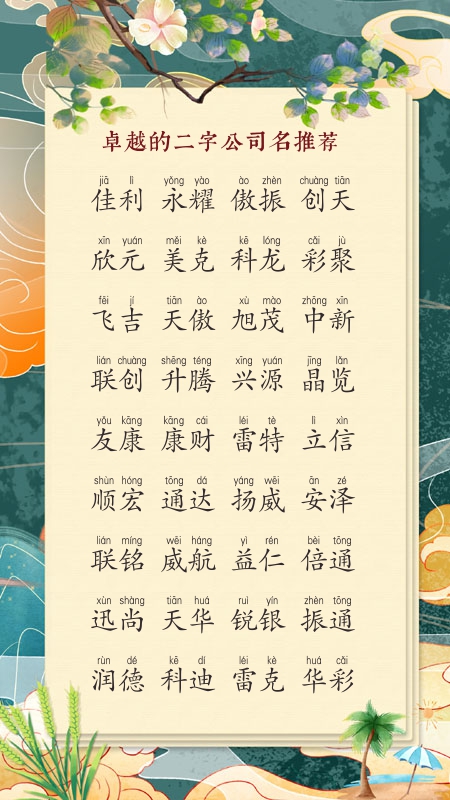 卓越的二字公司名推荐
jiā lì yǒng yào ào zhèn chuàng tiān
佳利 永耀 傲振 创天
xīn yuán měi kè kē lóng cǎi jù
欣元 美克 科龙 彩聚
fēi jí tiān ào xù mào zhōng xīn
飞吉 天傲 旭茂 中新
lián chuàng shēng téng xīng yuán jīng lǎn
联创 升腾 兴源 晶览
yǒu kāng kāng cái léi tè lì xìn
友康 康财 雷特 立信
shùn hóng tōng dá yáng wēi ān zé
顺宏 通达 扬威 安泽
lián míng wēi háng yì rén bèi tōng
联铭 威航 益仁 倍通
xùn shàng tiān huá ruì yín zhèn tōng
迅尚 天华 锐银 振通
rùn dé kē dí léi kè huá cǎi
润德 科迪 雷克 华彩